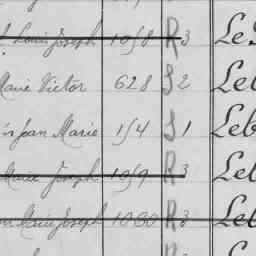 Louis Joseph 1058 R 3 Le
Marie Victor 628 S 2 Leb
Jean Marie 154 S 1 Leb
Marie Joseph 1059 R 3 Leb
Marie Joseph 1000 R 3 Leb